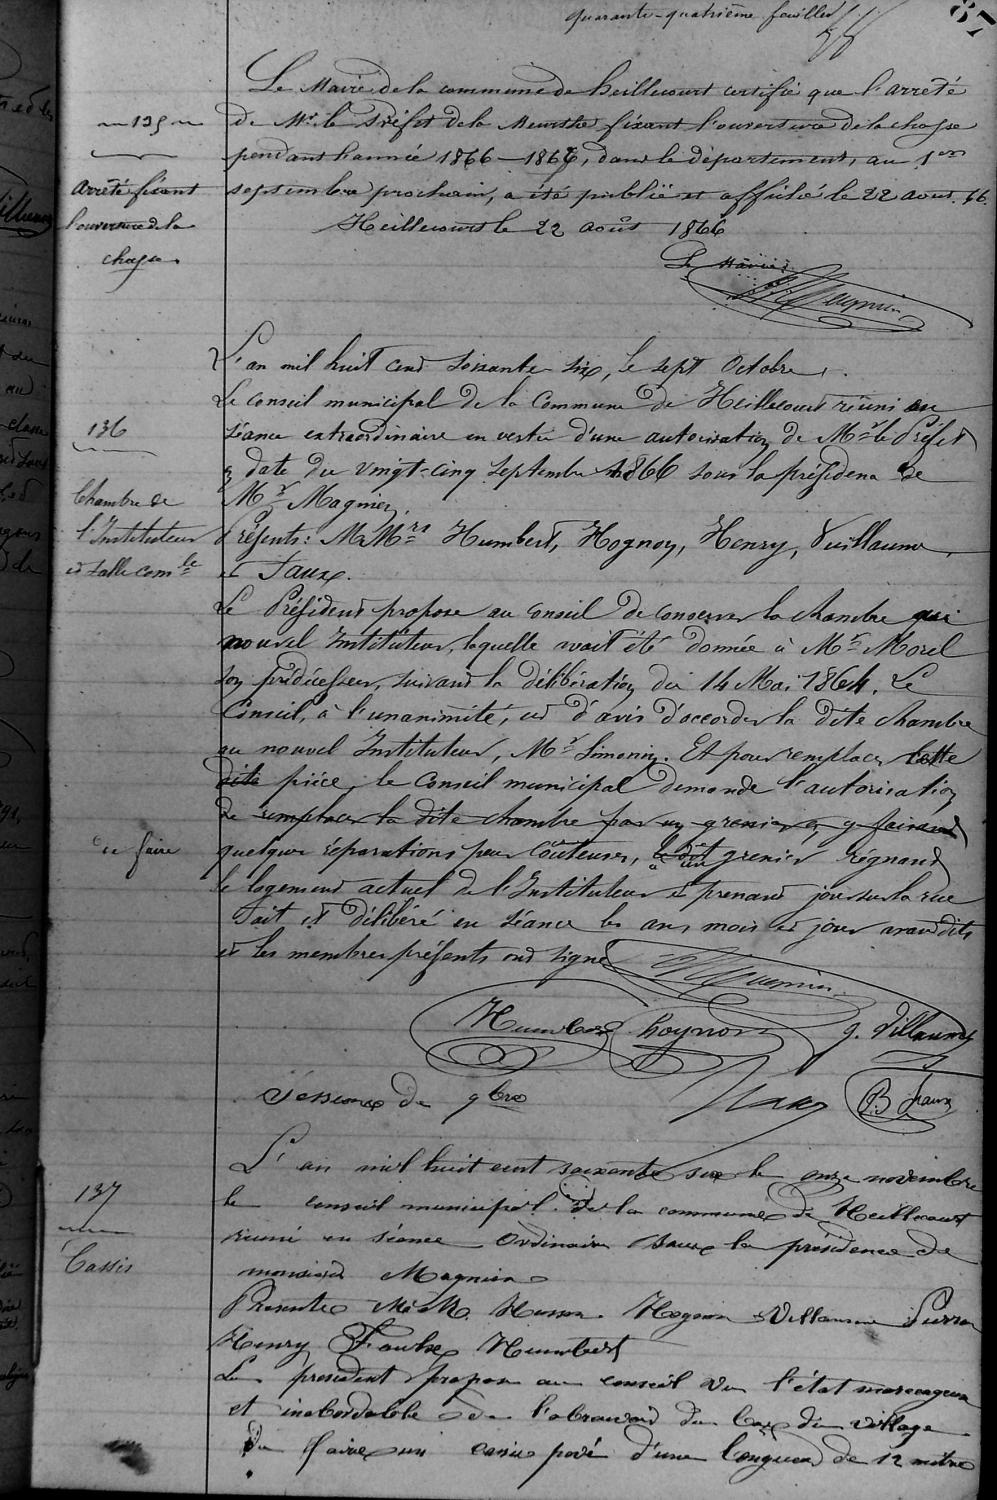 quarante-quatrième feuillet
87
Le Maire de la commune de heillecourt certifie que l'arrêté
~ 135 ~
de Mr. le Préfet de la Meurthe fixant l'ouverture de la chasse
pendant l'année 1866-1867, dans le département, au 1er
arrêté fixant
l'ouverture de la
chasse
septembre prochain, a été publié et affiché le 22 aout. 66.
Heillecourt le 22 août 1866
Le Maire
Magnien
L'an mil huit cent soixante six, le sept Octobre,
Le Conseil municipal de la Commune de Heillecourt réuni en
136
séance extraordinaire en vertu d'une autorisation de Mr le Préfet
en date du vingt-cinq septembre 1866 sous la présidence de
Chambre de
l'Instituteur
et salle comle
Mr Magnien.
Présents: M.Mrs Humbert, Hognon, Henry, Vuillaume,
et Faux.
Le Président propose au conseil de conserver la chambre au
nouvel Instituteur, laquelle avait été donnée à Mr Morel
son prédécesseur, suivant la délibération du 14 Mai 1864. Le
Conseil, à l'unanimité, est d'avis d'accorder la dite chambre
au nouvel Instituteur, Mr Simonin. Et pour remplacer cette
dite pièce, le Conseil municipal demande l'autorisation
de remplacer la dite chambre par un grenier en y faisant
de faire
quelques réparations peu coûteuses, à un grenier régnant
le logement actuel de l'Instituteur et prenant jour sur la rue
Fait et délibéré en séance les an, mois et jour avant dits
et les membres présents ont signé
Magnien
Humbert hognon J. Villaume
Session de 9bre
Henry B Faux
L'an mil huit cent soixante six le onze novembre
137
le conseil municipal de la commune de Heillecourt
réuni en séance Ordinaire sous la présidence de
Cassis
monsieur Magnien
Presents M.M. Husson Hognon Villaume Pierron
Henry Faulx Humbert
Le president propose au conseil vu l'état marecageux
et inabordable de l'abreuvoir du bas du village
de faire un cassis pavé d'une longueur de 12 metres